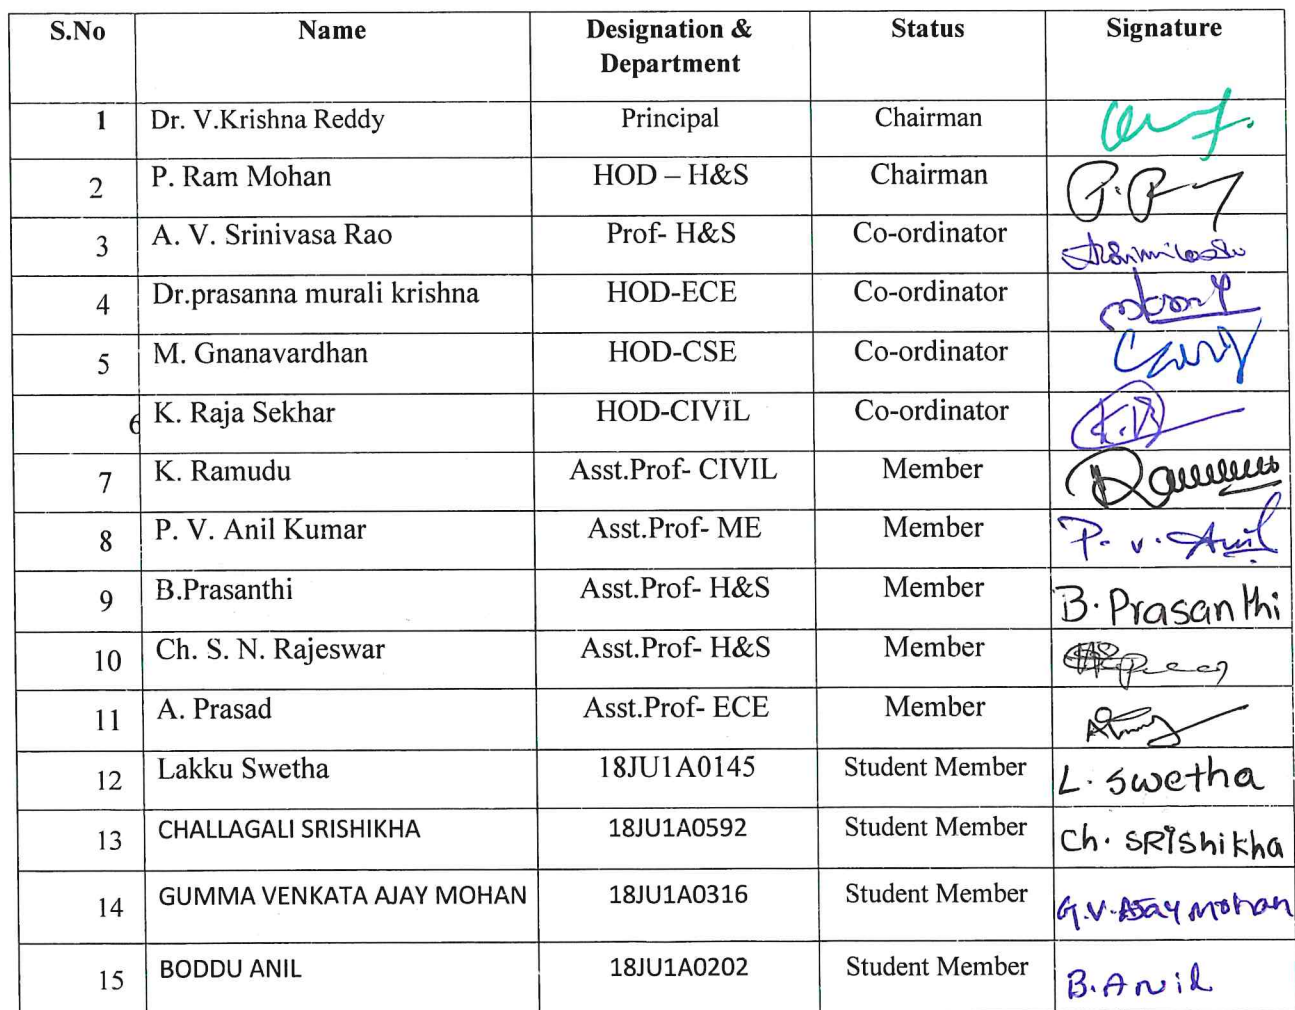 S.No Name Designation & Status Signature
Department
1 Dr. V.Krishna Reddy Principal Chairman
2 P. Ram Mohan HOD – H&S Chairman
3 A. V. Srinivasa Rao Prof- H&S Co-ordinator
4 Dr.prasanna murali krishna HOD-ECE Co-ordinator
5 M. Gnanavardhan HOD-CSE Co-ordinator
6 K. Raja Sekhar HOD-CIVIL Co-ordinator
7 K. Ramudu Asst.Prof- CIVIL Member
8 P. V. Anil Kumar Asst.Prof- ME Member P. v. Anil
9 B.Prasanthi Asst.Prof- H&S Member B. Prasanthi
10 Ch. S. N. Rajeswar Asst.Prof- H&S Member
11 A. Prasad Asst.Prof- ECE Member
12 Lakku Swetha 18JU1A0145 Student Member L. Swetha
13 CHALLAGALI SRISHIKHA 18JU1A0592 Student Member Ch. SRIShikha
14 GUMMA VENKATA AJAY MOHAN 18JU1A0316 Student Member G.V. AJay Mohan
15 BODDU ANIL 18JU1A0202 Student Member B. Anil